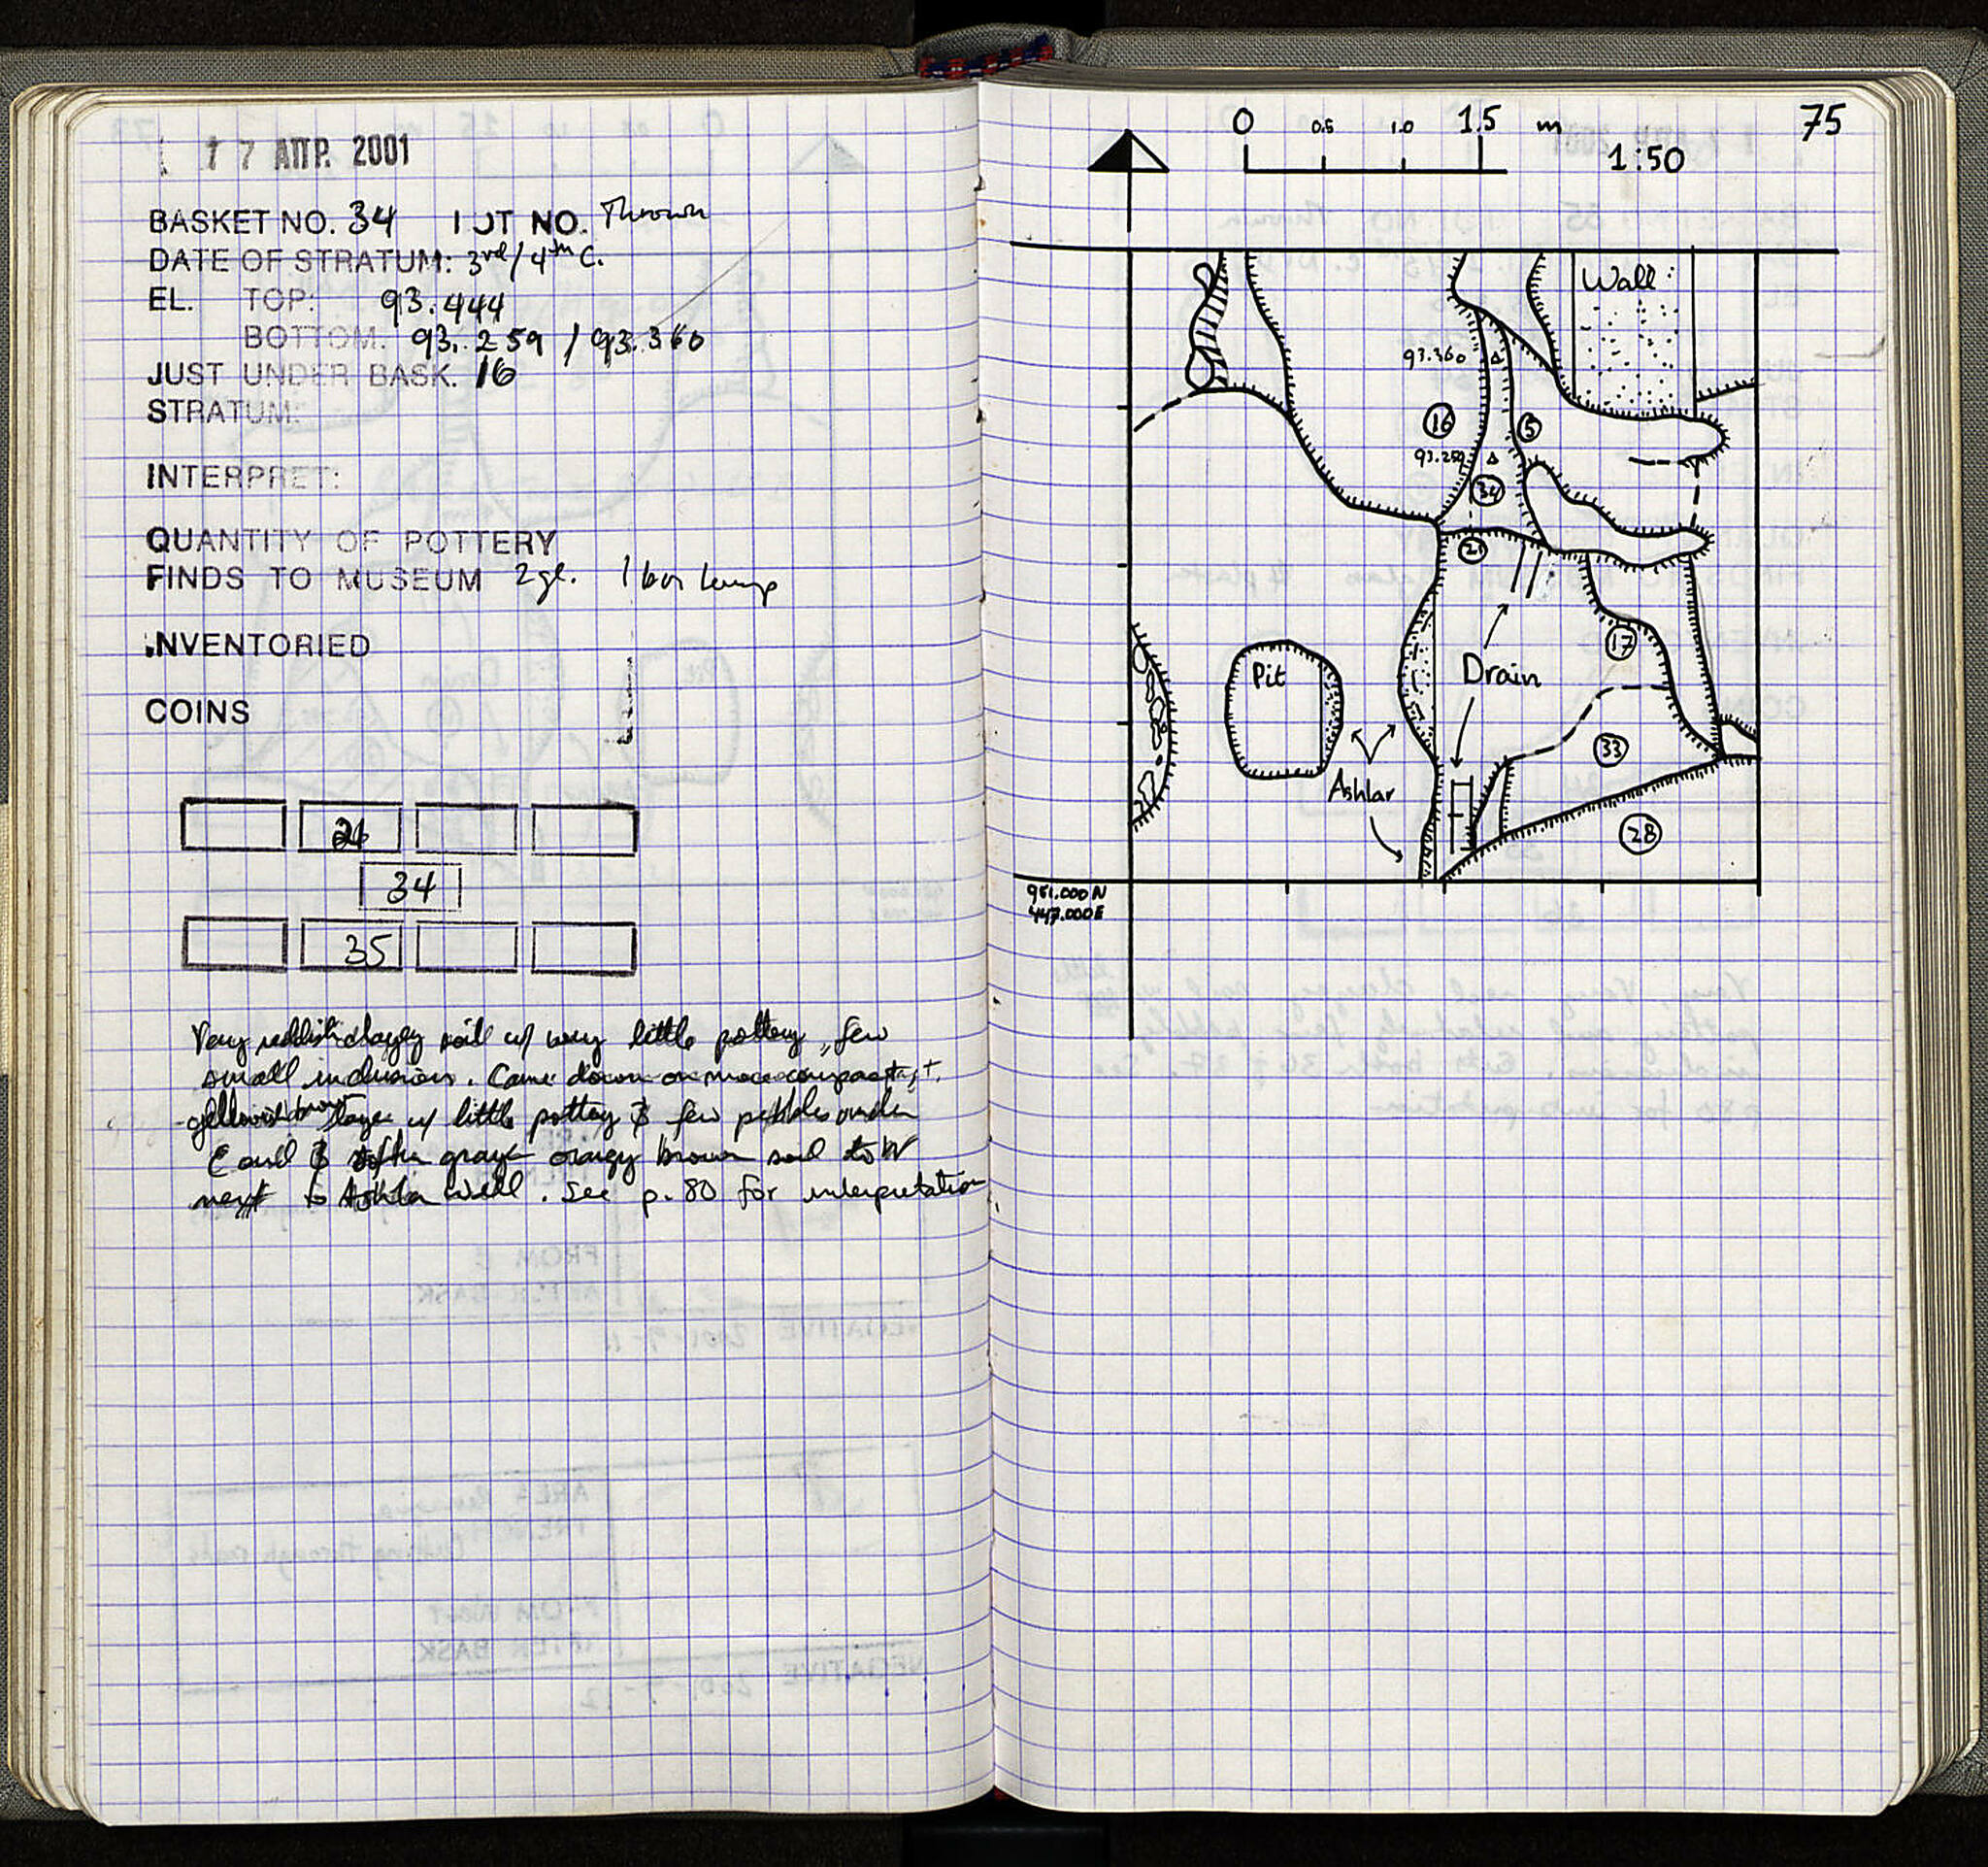 17 ΑΠΡ. 2001
BASKET NO. 34 LOT NO. Thrown
DATE OF STRATUM: 3rd/4th C.
EL. TOP: 93.444
BOTTOM: 93.259 / 93.360
JUST UNDER BASK. 16
STRATUM:
INTERPRET:
QUANTITY OF POTTERY
FINDS TO MUSEUM 2 gl. 1 lamp
INVENTORIED
COINS
34
35
Very reddish clayey soil w/ very little pottery, few
small inclusions. Came down on more compact
yellowish brown layer w/ little pottery & few pebbles under
E and & softer orangy brown soil to W
next to Ashlar Wall. See p. 80 for interpretation
75
0 0.5 1.0 1.5 m
1:50
Wall:
93.360
16
5
93.259
34
21
17
Pit
Drain
33
Ashlar
28
951.000 N
447.000 E